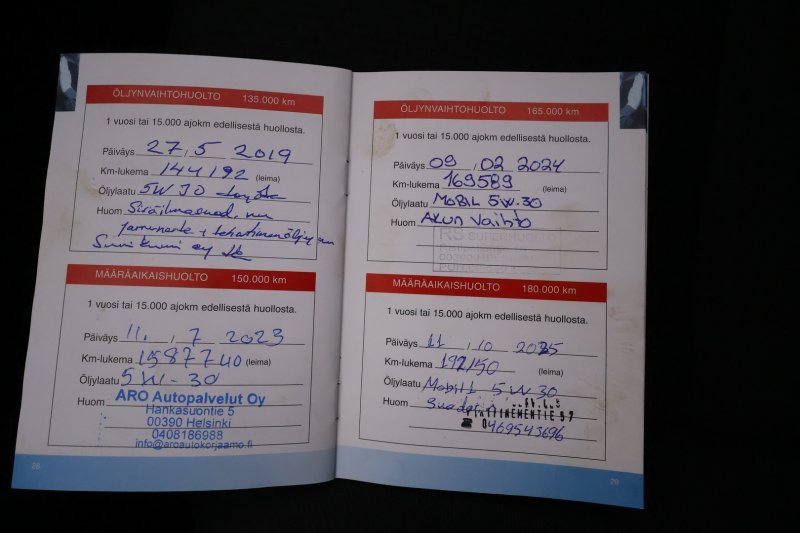 ÖLJYNVAIHTOHUOLTO 135.000 km
1 vuosi tai 15.000 ajokm edellisestä huollosta.
Päiväys 27 / 5 2019
Km-lukema 144192 (leima)
Öljylaatu 5W30
Huom
oy
MÄÄRÄAIKAISHUOLTO 150.000 km
1 vuosi tai 15.000 ajokm edellisestä huollosta.
Päiväys 11. / 7 2023
Km-lukema 1587740 (leima)
Öljylaatu 5W-30
Huom ARO Autopalvelut Oy
Hankasuontie 5
00390 Helsinki
0408186988
info@aroautokorjaamo.fi
28
ÖLJYNVAIHTOHUOLTO 165.000 km
1 vuosi tai 15.000 ajokm edellisestä huollosta.
Päiväys 09 / 02 2024
Km-lukema 169589 (leima)
Öljylaatu MOBIL 5W.30
Huom AKUN VAIHTO
MÄÄRÄAIKAISHUOLTO 180.000 km
1 vuosi tai 15.000 ajokm edellisestä huollosta.
Päiväys 11 / 10 2025
Km-lukema 192150 (leima)
Öljylaatu Mobill 5W30
Huom
0469543696
29